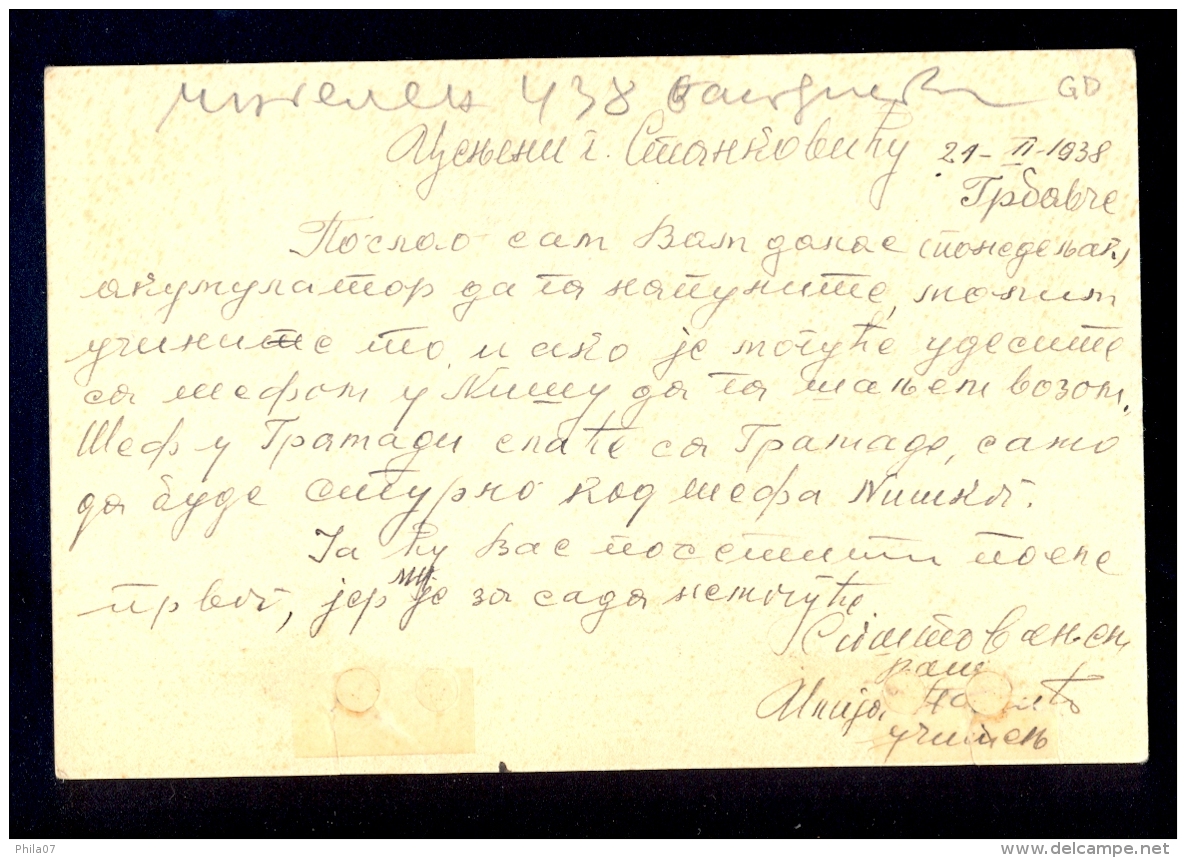 438
GD
Цењени г. Станковићу 21-II-1938
Грбавче
Послао сам Вам данас (понедељак)
акумулатор да га напуните, молим
учините то, и ако је могуће удесите
са шефом у Нишу да га шаљем возом.
Шеф у Грамади слаће са Грамаде, само
да буде сигурно код шефа Нишког.
Ја ћу Вас посетити после
првог, јер ми је за сада немогуће.
С поштовањем
Илија
учитељ
Phila07
delcampe.net